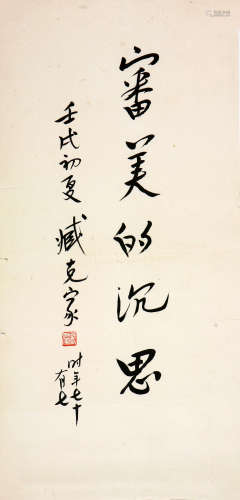 審美的沉思
壬戌初夏 臧克家
时年七十
有七